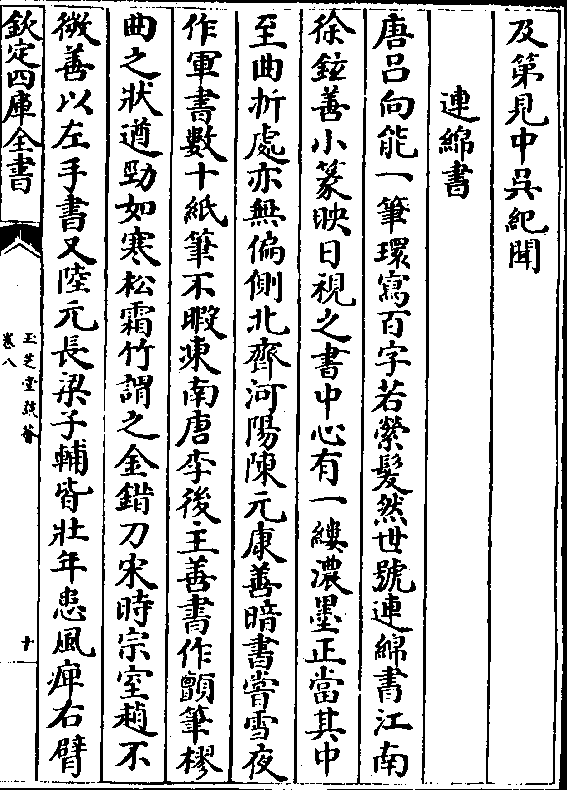 及第見中吳紀聞
連綿書
唐呂向能一筆環寫百字若縈髮然世號連綿書江南
徐鉉善小篆映日視之書中心有一縷濃墨正當其中
至曲折處亦無偏側北齊河陽陳元康善暗書嘗雪夜
作軍書數十紙筆不暇凍南唐李後主善書作顫筆樛
曲之狀遒勁如寒松霜竹謂之金錯刀宋時宗室趙不
微善以左手書又陸元長梁子輔皆壯年患風痺右臂
欽定四庫全書
玉芝堂談薈
卷八
十